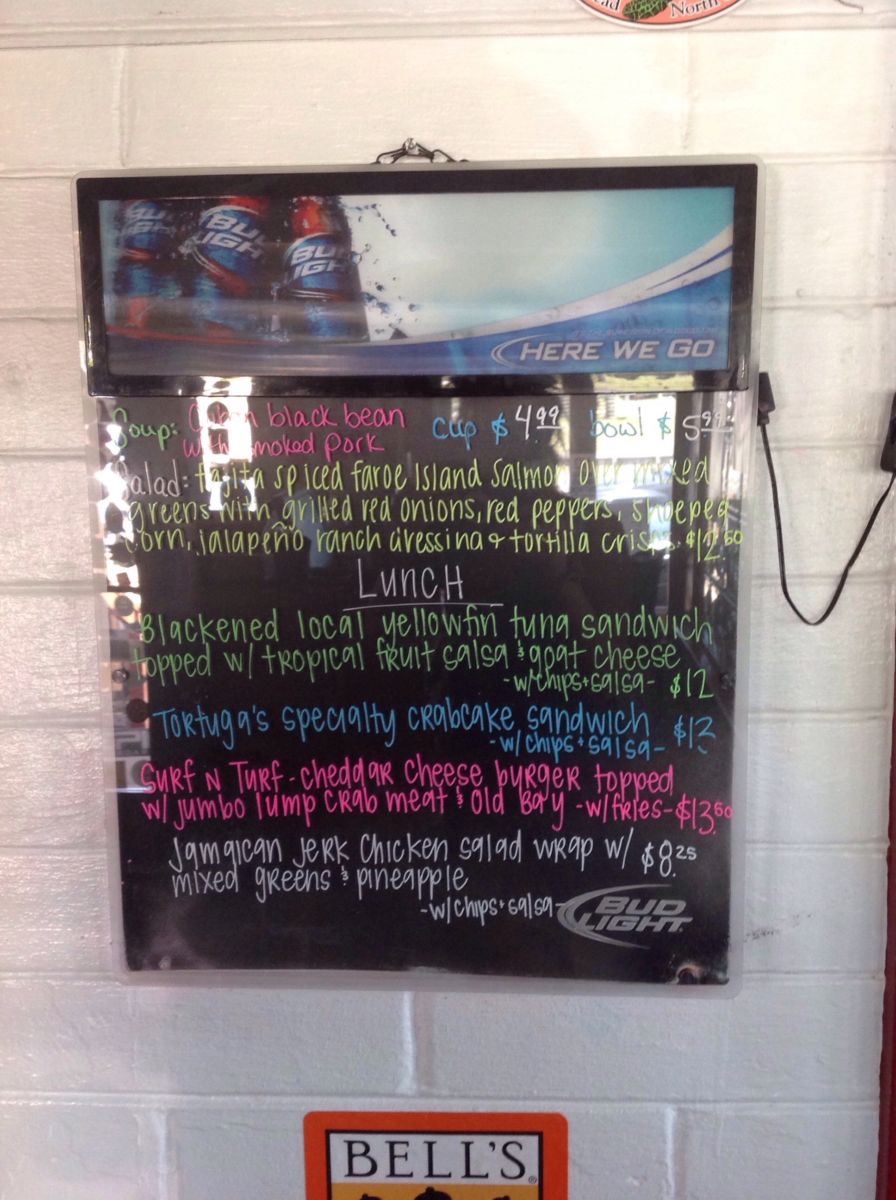 ead North
BUD LIGHT
BUD LIGHT
BUD LIGHT
HERE WE GO
Soup: Cuban black bean cup $4.99 bowl $5.99
with smoked pork
Salad: fajita spiced faroe Island salmon over mixed
greens with grilled red onions, red peppers, shoepeg
corn, jalapeño ranch dressing & tortilla crisps. $12.50
LUNCH
Blackened local yellowfin tuna sandwich
topped w/ tropical fruit salsa & goat cheese
-w/chips+salsa- $12
Tortuga's specialty crabcake sandwich $12
-w/chips+salsa-
Surf N Turf - cheddar cheese burger topped
w/ jumbo lump crab meat & Old Bay -w/fries- $13.50
Jamaican Jerk Chicken salad wrap w/ $8.25
mixed greens & pineapple
-w/chips+salsa-
BUD LIGHT.
BELL'S